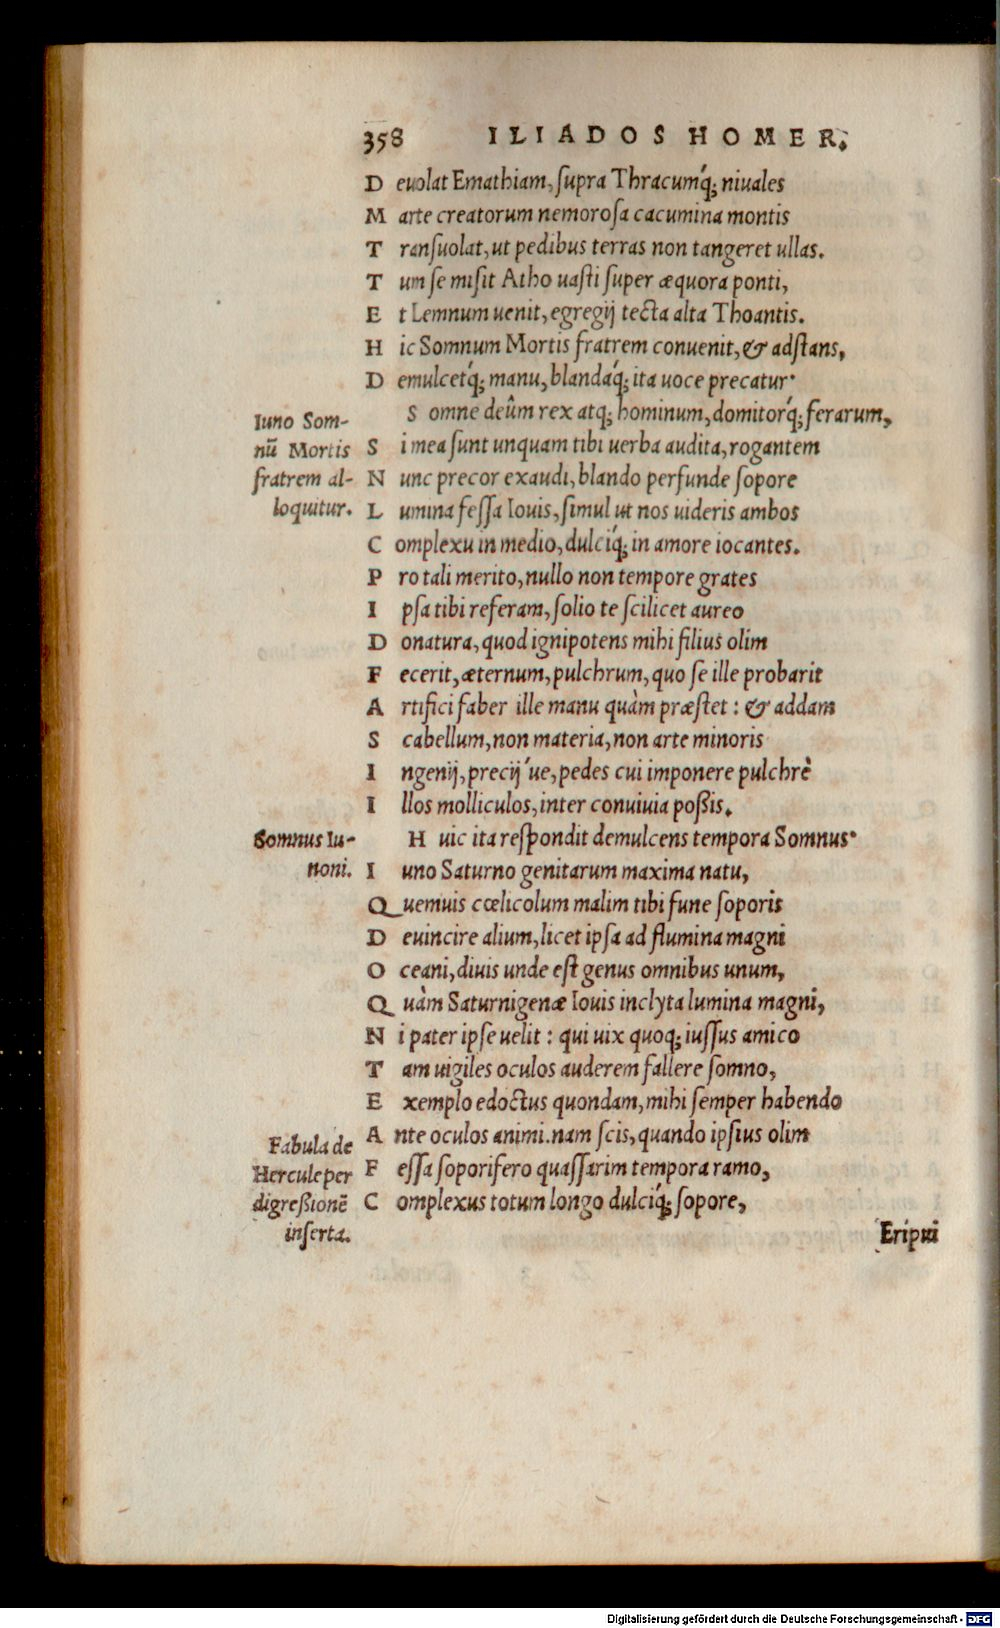 358 ILIADOS HOMER.
D euolat Emathiam, ſupra Thracumq́; niuales
M arte creatorum nemoroſa cacumina montis
T ranſuolat, ut pedibus terras non tangeret ullas.
T um ſe miſit Atho uaſti ſuper æquora ponti,
E t Lemnum uenit, egregij tecta alta Thoantis.
H ic Somnum Mortis fratrem conuenit, & adſtans,
D emulcetq́; manu, blandaq́; ita uoce precatur·
S omne deûm rex atq; hominum, domitorq́; ferarum,
Iuno Som-
nū Mortis
fratrem al-
loquitur.
S i mea ſunt unquam tibi uerba audita, rogantem
N unc precor exaudi, blando perfunde ſopore
L umina feſſa Iouis, ſimul ut nos uideris ambos
C omplexu in medio, dulciq́; in amore iocantes.
P ro tali merito, nullo non tempore grates
I pſa tibi referam, ſolio te ſcilicet aureo
D onatura, quod ignipotens mihi filius olim
F ecerit, æternum, pulchrum, quo ſe ille probarit
A rtifici faber ille manu quàm præſtet : & addam
S cabellum, non materia, non arte minoris
I ngenij, precij 'ue, pedes cui imponere pulchrè
I llos molliculos, inter conuiuia poßis.
Somnus Iu-
noni.
H uic ita reſpondit demulcens tempora Somnus·
I uno Saturno genitarum maxima natu,
Q uemuis cœlicolum malim tibi fune ſoporis
D euincire alium, licet ipſa ad flumina magni
O ceani, diuis unde eſt genus omnibus unum,
Q uàm Saturnigenæ Iouis inclyta lumina magni,
N i pater ipſe uelit : qui uix quoq; iuſſus amico
T am uigiles oculos auderem fallere ſomno,
E xemplo edoctus quondam, mihi ſemper habendo
A nte oculos animi. nam ſcis, quando ipſius olim
Fabula de
Hercule per
digreßionē
inſerta.
F eſſa ſoporifero quaſſarim tempora ramo,
C omplexus totum longo dulciq́; ſopore,
Eripui
Digitalisierung gefördert durch die Deutsche Forschungsgemeinschaft - DFG